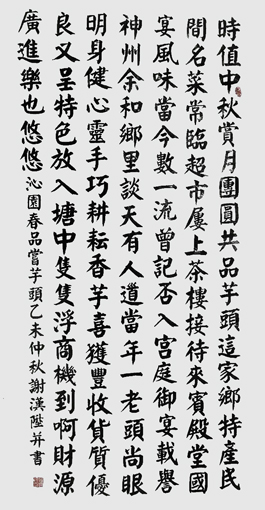 時值中秋賞月團圓共品芋頭這家鄉特產民
間名菜常臨超市屢上茶樓接待來賓殿堂國
宴風味當今數一流曾記否入宮庭御宴載譽
神州余和鄉里談天有人道當年一老頭尚眼
明身健心靈手巧耕耘香芋喜獲豐收貨質優
良又呈特色放入塘中隻隻浮商機到啊財源
廣進樂也悠悠 沁園春品嘗芋頭乙未仲秋謝漢陞并書